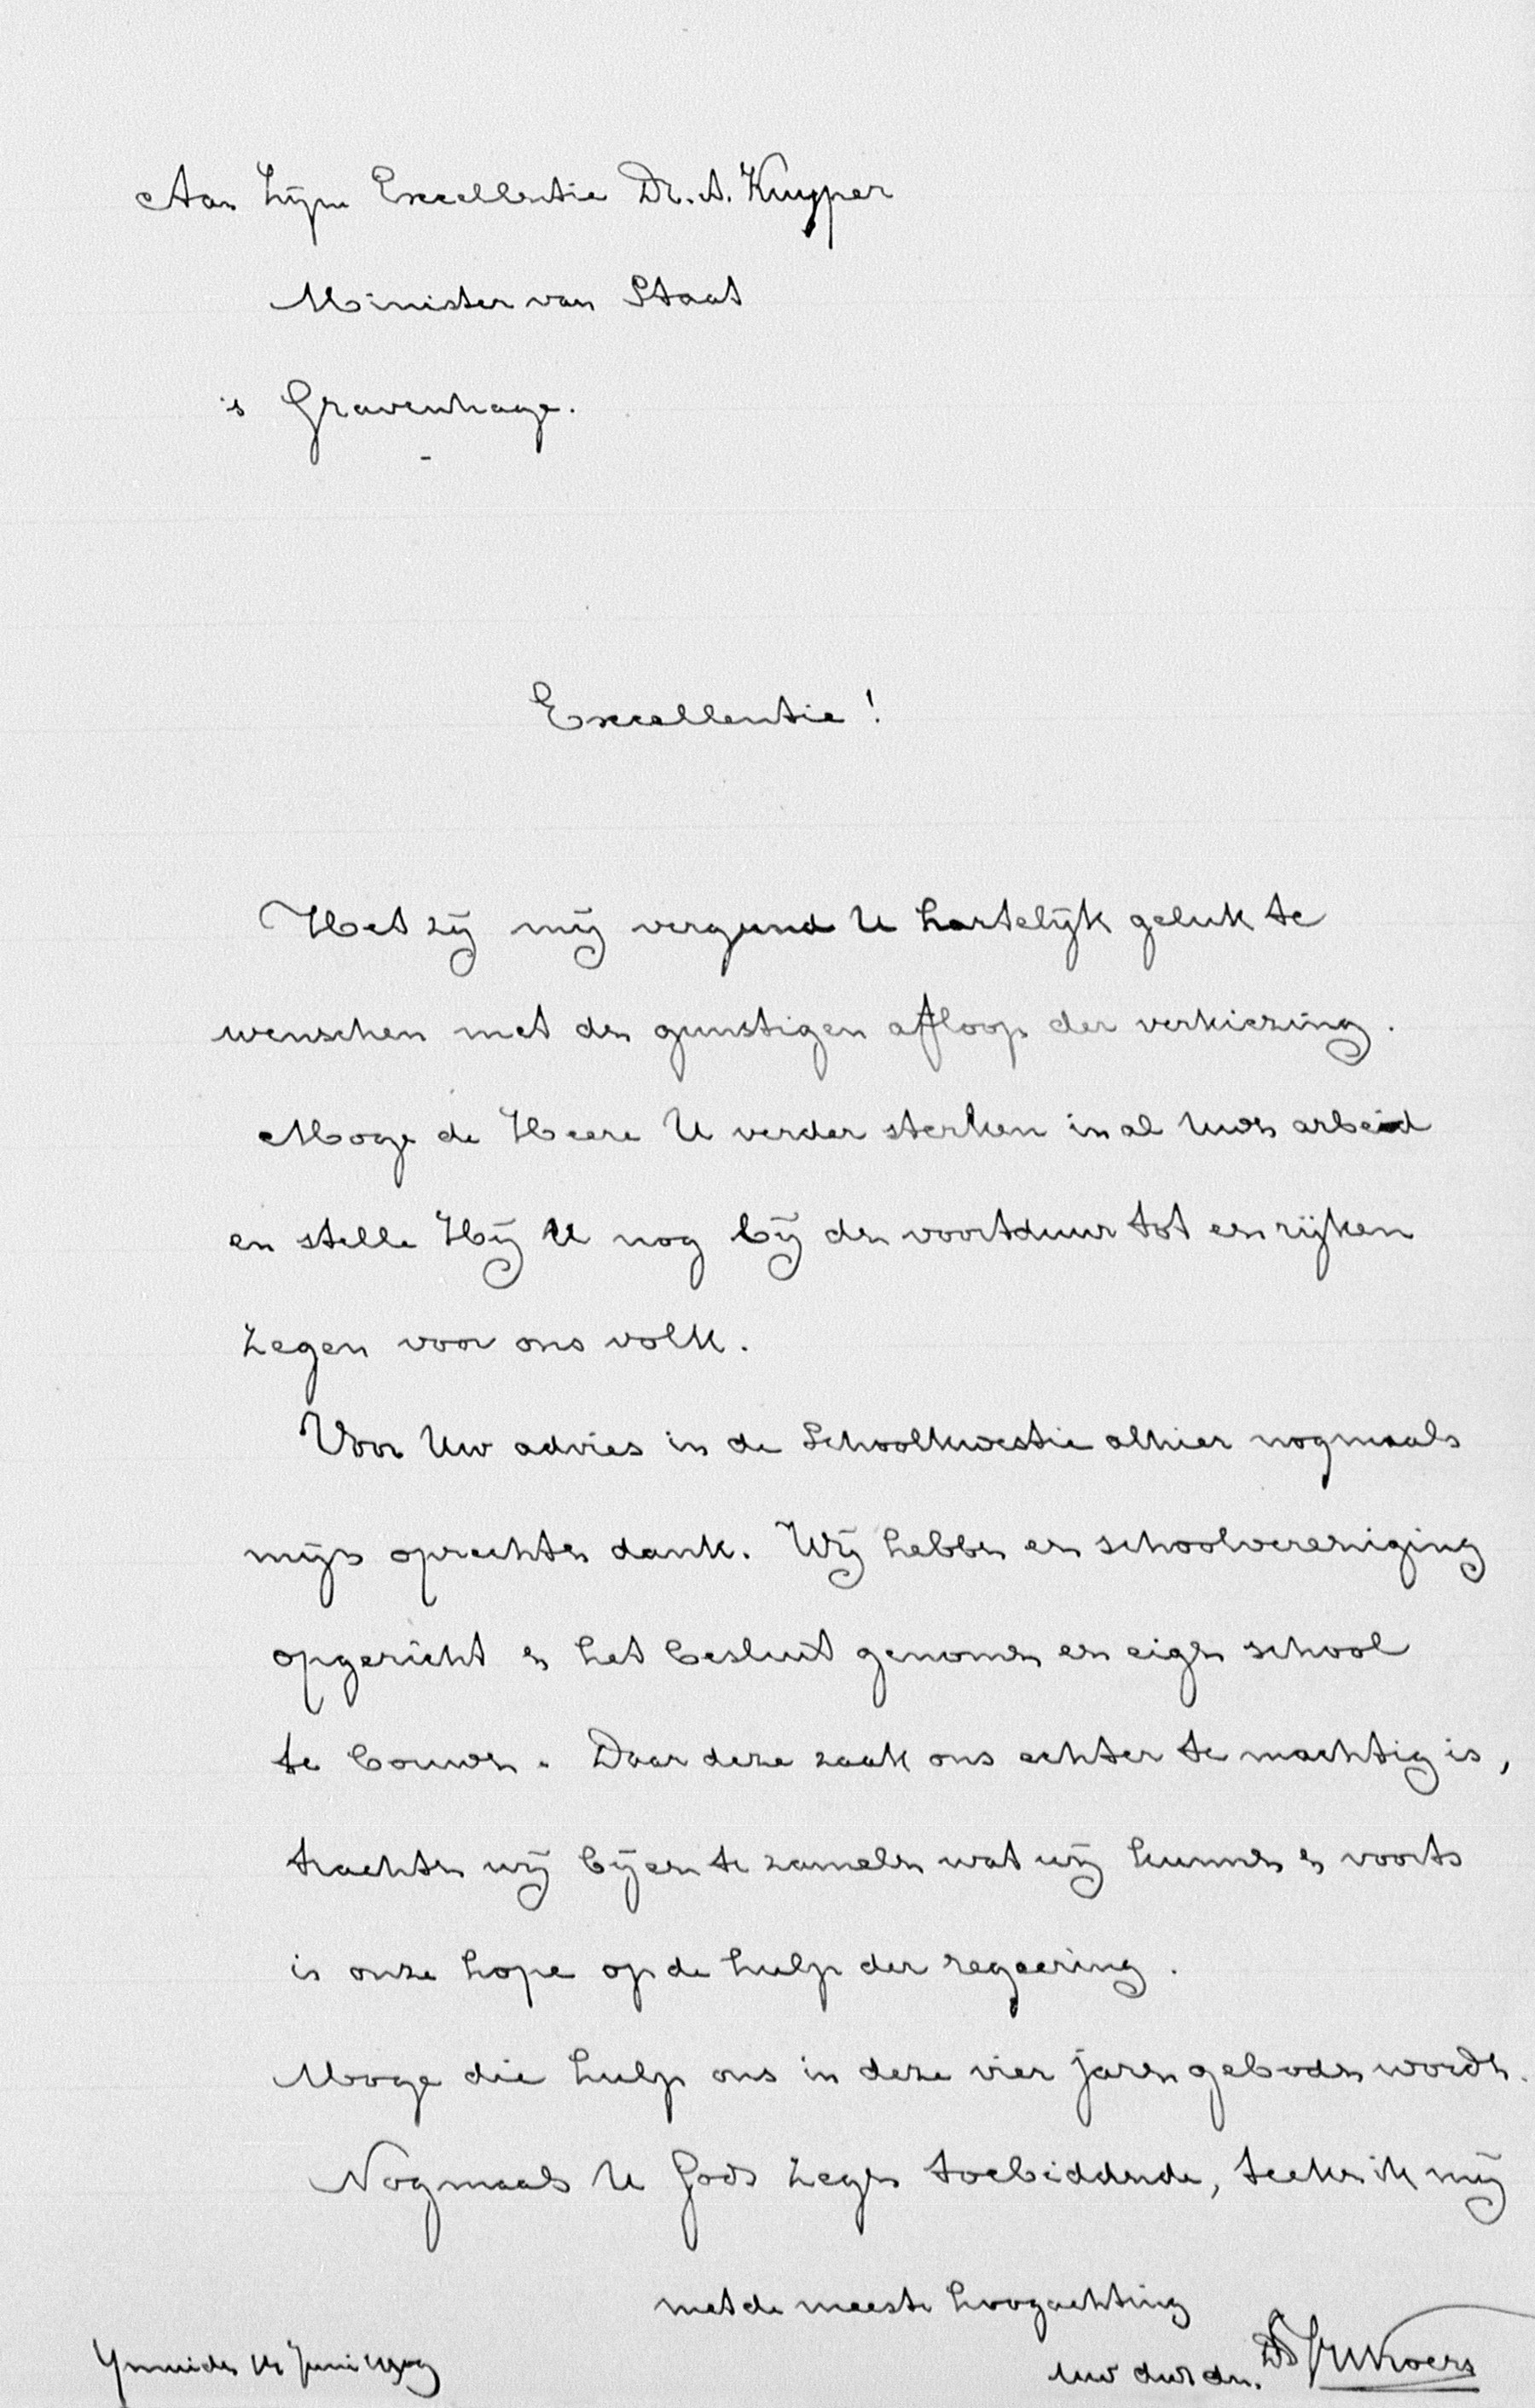 Aan Zijne Excellentie Dr. A. Kuyper
Minister van Staat
's Gravenhage.
Excellentie!
Het zij mij vergund U hartelijk geluk te
wenschen met den gunstigen afloop der verkiezing.
Moge de Heere U verder sterken in al Uwen arbeid
en stelle Hij U nog bij den voortduur tot een rijken
zegen voor ons volk.
Voor Uw advies in de schoolkwestie alhier nogmaals
mijn oprechten dank. Wij hebben een schoolvereeniging
opgericht en het besluit genomen een eigen school
te bouwen. Daar deze zaak ons echter te machtig is,
trachten wij bijeen te zamelen wat wij kunnen en voorts
is onze hope op de hulp der regeering.
Moge die hulp ons in deze vier jaren geboden worden.
Nogmaals U Gods zegen toebiddende, teeken ik mij
met de meeste hoogachting
Ymuiden Juni 1909
Uw dw dn. Ds Koers